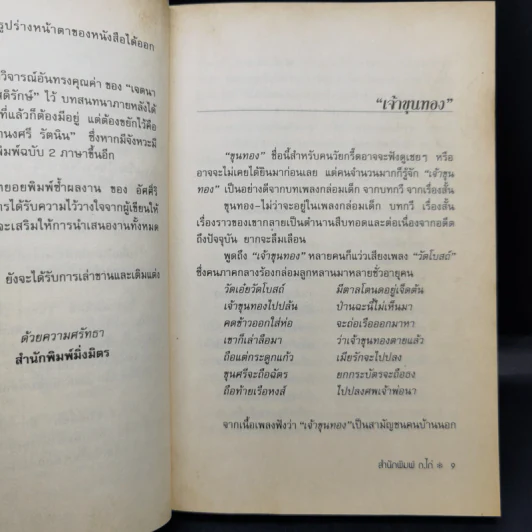 รูปร่างหน้าตาของหนังสือได้ออก
วิจารณ์อันทรงคุณค่า ของ “เจตนา
ไว้ บทสนทนาภายหลังได้
ที่แล้วก็ต้องมีอยู่ แต่ต้องขยักไว้คือ
รัตนิน” ซึ่งหากมีจังหวะมี
พิมพ์ฉบับ 2 ภาษาขึ้นอีก
ทยอยพิมพ์ซ้ำผลงาน ของ อัศศิริ
ารได้รับความไว้วางใจจากผู้เขียนให้
จะเสริมให้การนำเสนองานทั้งหมด
ยังจะได้รับการเล่าขานและเติมแต่ง
ด้วยความศรัทธา
สำนักพิมพ์มิ่งมิตร
“เจ้าขุนทอง”
“ขุนทอง” ชื่อนี้สำหรับคนวัยกรี๊ดอาจจะฟังดูเชยๆ หรือ
อาจจะไม่เคยได้ยินมาก่อนเลย แต่คนจำนวนมากก็รู้จัก “เจ้าขุน
ทอง” เป็นอย่างดีจากบทเพลงกล่อมเด็ก จากบทกวี จากเรื่องสั้น
ขุนทอง-ไม่ว่าจะอยู่ในเพลงกล่อมเด็ก บทกวี เรื่องสั้น
เรื่องราวของเขากลายเป็นตำนานสืบทอดและต่อเนื่องจากอดีต
ถึงปัจจุบัน ยากจะลืมเลือน
พูดถึง “เจ้าขุนทอง” หลายคนก็แว่วเสียงเพลง “วัดโบสถ์”
ซึ่งคนภาคกลางร้องกล่อมลูกหลานมาหลายชั่วอายุคน
วัดเอ๋ยวัดโบสถ์ มีตาลโตนดอยู่เจ็ดต้น
เจ้าขุนทองไปปล้น ป่านฉะนี้ไม่เห็นมา
คดข้าวออกใส่ห่อ จะถ่อเรือออกมาหา
เขาก็เล่าลือมา ว่าเจ้าขุนทองตายแล้ว
ถือแต่กระดูกแก้ว เมียรักจะไปปลง
ขุนศรีจะถือฉัตร ยกกระบัตรจะถือธง
ถือท้ายเรือหงส์ ไปปลงศพเจ้าพ่อนา
จากเนื้อเพลงฟังว่า “เจ้าขุนทอง”เป็นสามัญชนคนบ้านนอก
สำนักพิมพ์ ก.ไก่ ๏ ๑